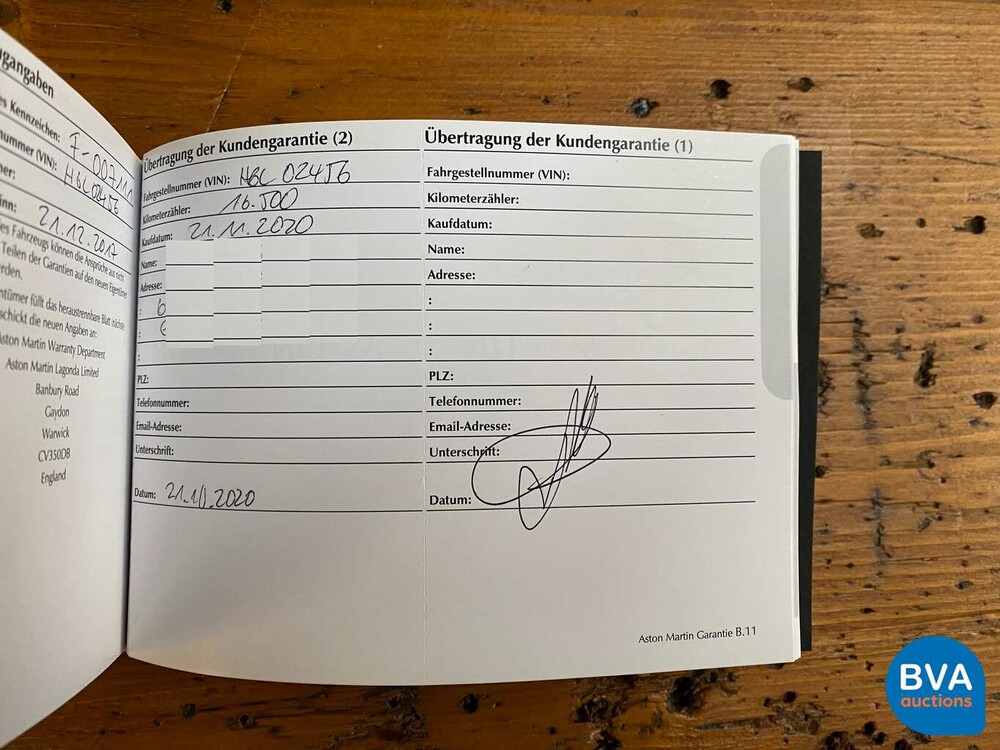 gangaben
es Kennzeichen: F-007111
nummer (VIN): HGL02456
ner:
inn: 21.12.2017
es Fahrzeugs können die Ansprüche aus nicht
Teilen der Garantien auf den neuen Eigentümer
erden.
entümer füllt das heraustrennbare Blatt (nächste
schickt die neuen Angaben an:
Aston Martin Warranty Department
Aston Martin Lagonda Limited
Banbury Road
Gaydon
Warwick
CV350DB
England
Übertragung der Kundengarantie (2)
Fahrgestellnummer (VIN): HGL 02456
Kilometerzähler: 16.500
Kaufdatum: 21.11.2020
Name:
Adresse:
: 6
:
:
PLZ:
Telefonnummer:
Email-Adresse:
Unterschrift:
Datum: 21.10.2020
Übertragung der Kundengarantie (1)
Fahrgestellnummer (VIN):
Kilometerzähler:
Kaufdatum:
Name:
Adresse:
:
:
:
PLZ:
Telefonnummer:
Email-Adresse:
Unterschrift:
Datum:
Aston Martin Garantie B.11
BVA
auctions